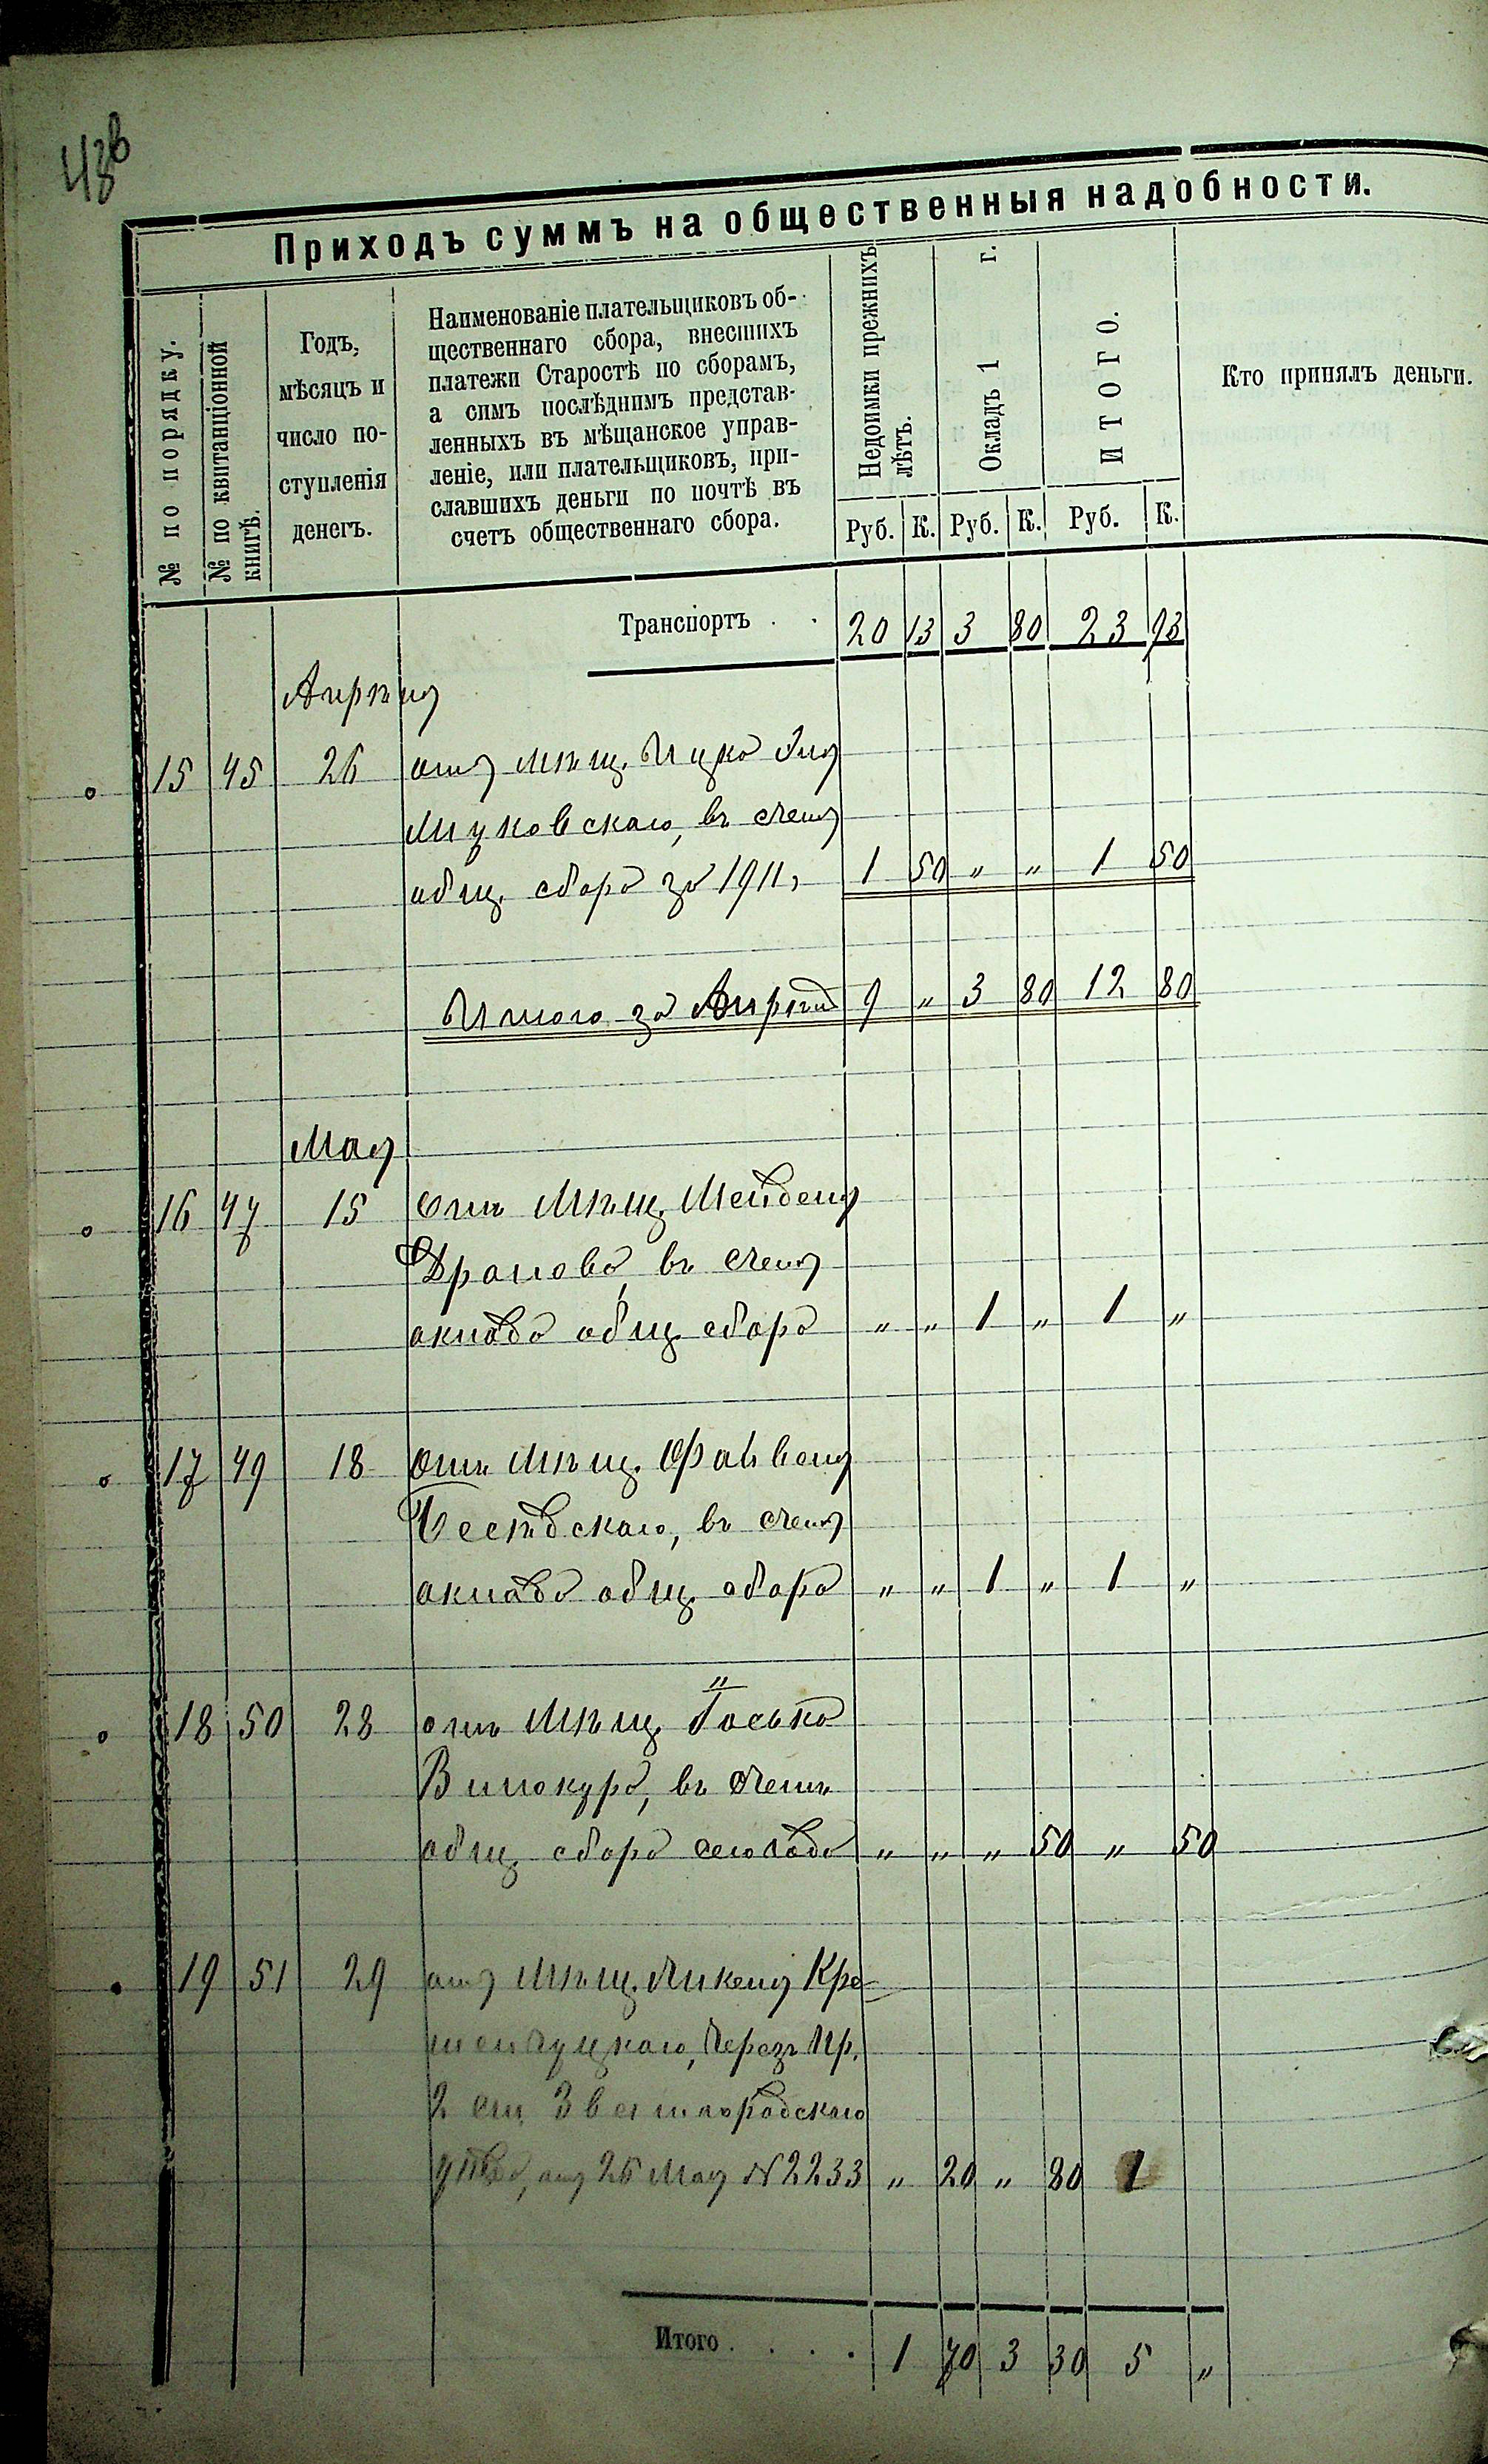 43в
Приходъ суммъ на общественныя надобности.
№ по порядку.
№ по квитанціонной книгѣ.
Годъ, мѣсяцъ и число поступленія денегъ.
Наименованіе плательщиковъ об-
щественнаго сбора, внесшихъ
платежи Старостѣ по сборамъ,
а симъ послѣднимъ представ-
ленныхъ въ мѣщанское управ-
леніе, или плательщиковъ, при-
славшихъ деньги по почтѣ въ
счетъ общественнаго сбора.
Недоимки прежнихъ лѣтъ.
Окладъ 1 г.
ИТОГО.
Кто принялъ деньги.
Руб. К. Руб. К. Руб. К.
Транспортъ . . 20 13 3 80 23 93
Апрѣль
15 45 26 отъ мѣщ. Ицко
въ счетъ
общ. сбора за 1911, 1 50 „ „ 1 50
Итого за Апрѣль 9 „ 3 80 12 80
Май
16 47 15 отъ Мѣщ.
въ счетъ
оклада общ сбора „ „ 1 „ 1 „
17 49 18 отъ Мѣщ. Файвеля
Бесѣдскаго, въ счетъ
оклада общ. сбора „ „ 1 „ 1 „
18 50 28 отъ Мѣщ. Госька
Винокура, въ счетъ
общ. сбора сего года „ „ „ 50 „ 50
19 51 29 отъ Мѣщ. Кре-
менчуцкаго, Черезъ Пр.
2 ст. Звенигородскаго
уѣзда, отъ 26 Мая № 2233 „ 20 „ 80 1
Итого . . . . 1 70 3 30 5 „